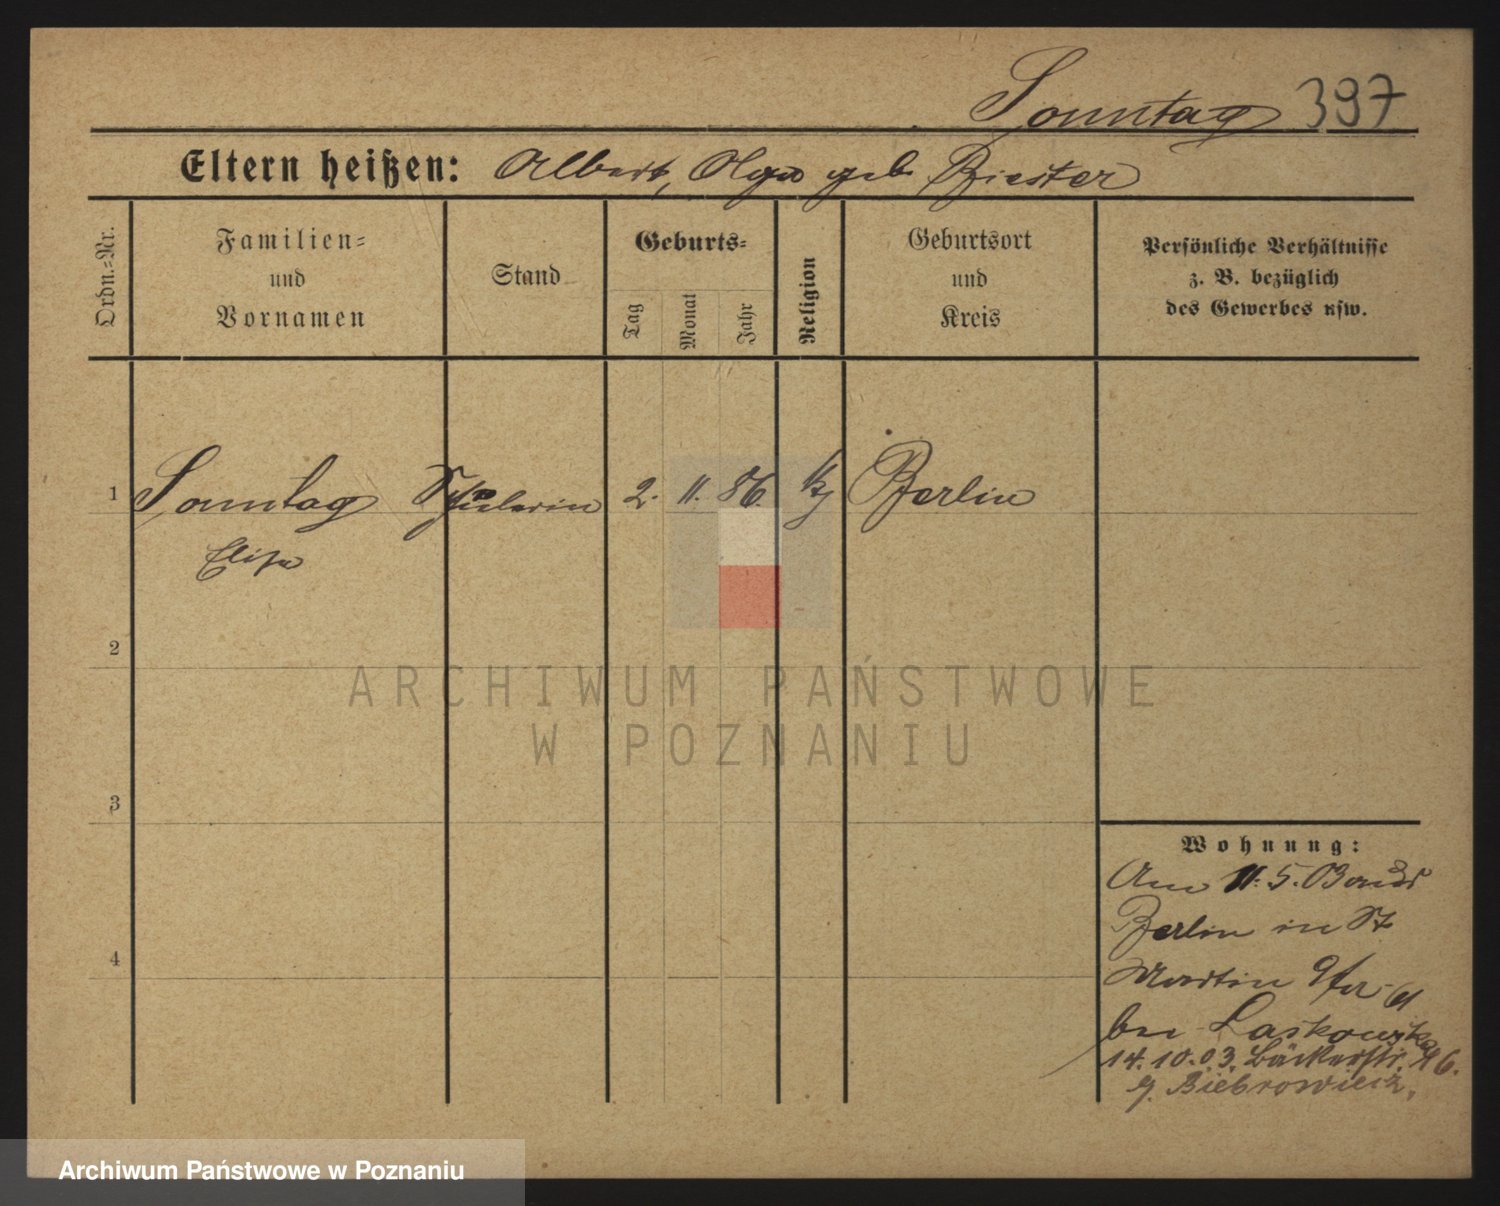 Sonntag 397
Eltern heißen: Albert, Olga geb. Biester
Ordn.-Nr.
Familien-
und
Vornamen
Stand
Geburts-
Tag
Monat
Jahr
Religion
Geburtsort
und
Kreis
Persönliche Verhältnisse
z. B. bezüglich
des Gewerbes usw.
1 Sonntag Schülerin 2. 11. 86. Berlin
Elisa
2
3
4
Wohnung:
Am 11. 5. 03 aus
Berlin in St
Martin
bei Laskowska
14. 10. 03. Bäckerstr.
Biebrowicz.
ARCHIWUM PAŃSTWOWE
W POZNANIU
Archiwum Państwowe w Poznaniu